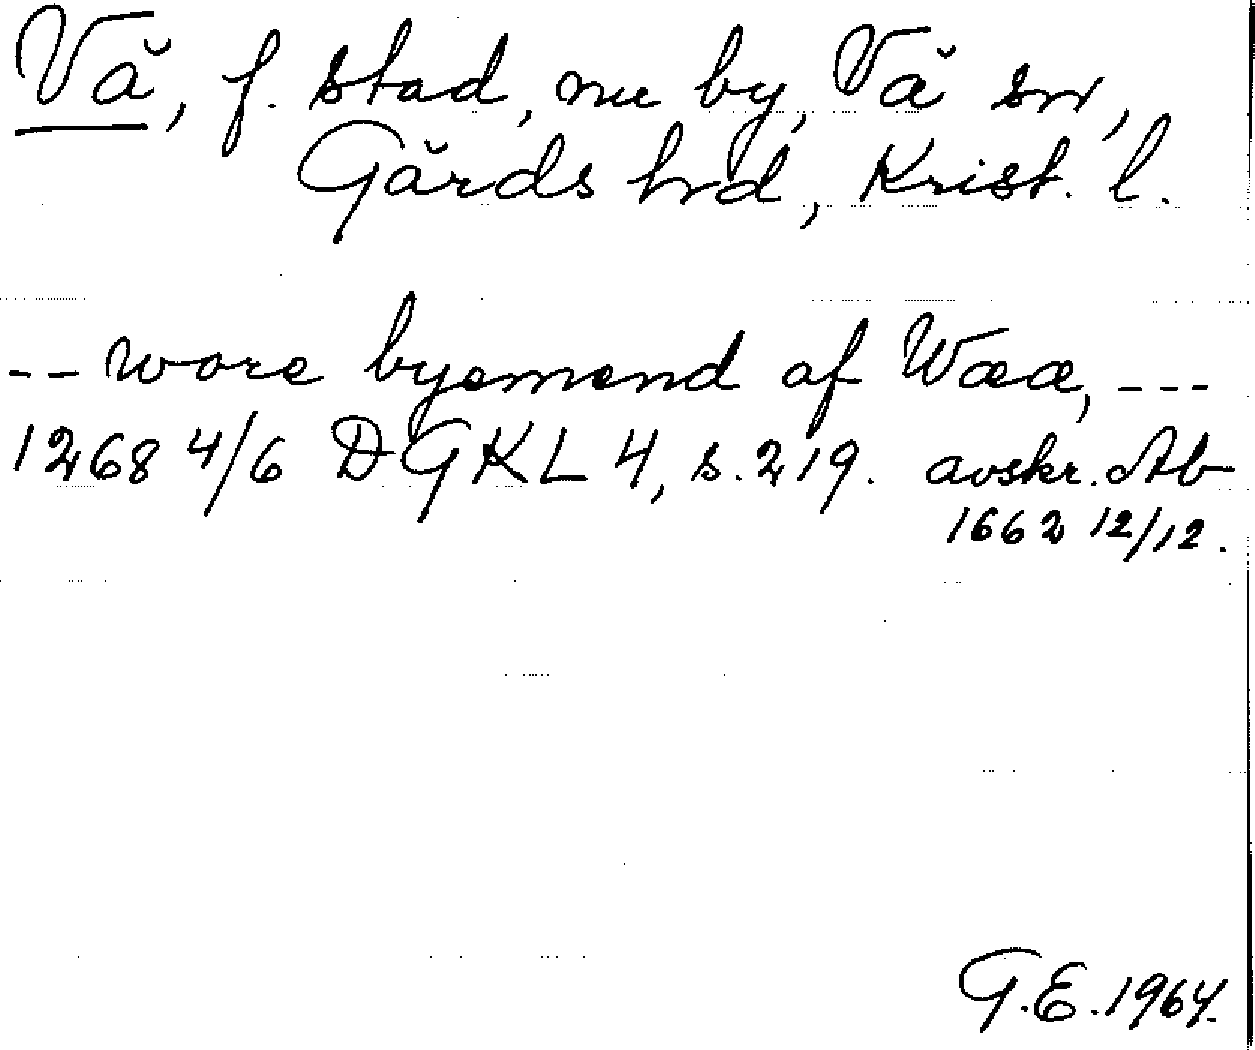 Vå, f. stad, nu by, Vå sn,
Gärds hrd, Krist. l.
-- wore byemend af Wææ, ---
1268 4/6 DGKL 4, s. 219. avskr. Ab
1662 12/12.
G.E. 1964.